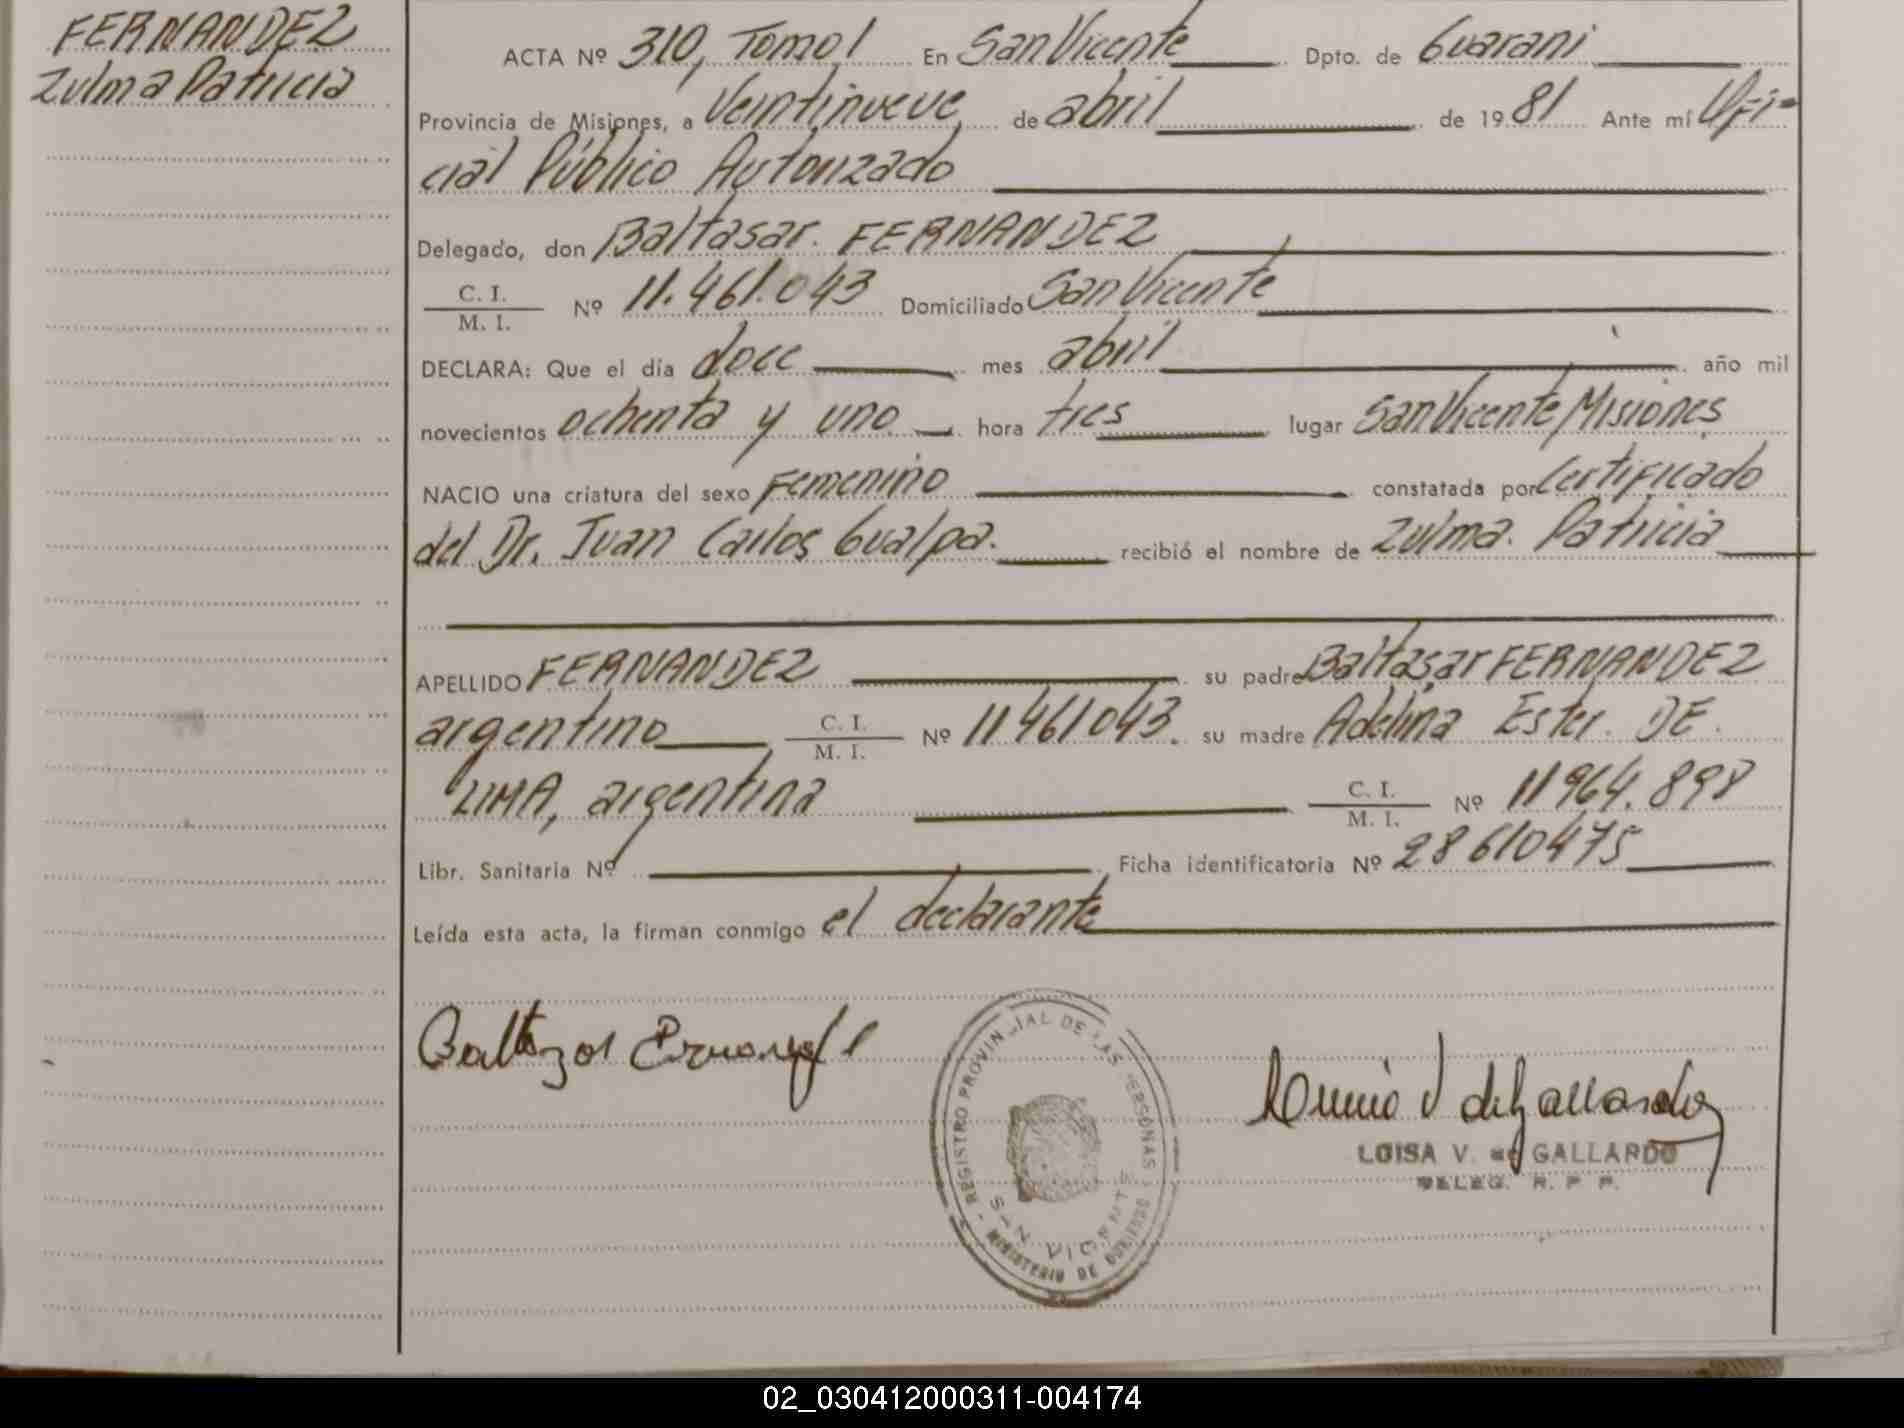 FERNANDEZ
Zulma Patricia
ACTA Nº 310, Tomo I En San Vicente Dpto. de Guarani
Provincia de Misiones, a Veintinueve de abril de 1981 Ante mí Ofi-
cial Público Autorizado
Delegado, don Baltasar. FERNANDEZ
C. I.
M. I.
Nº 11.461.043 Domiciliado San Vicente
DECLARA: Que el día doce mes abril año mil
novecientos ochenta y uno hora tres lugar San Vicente, Misiones
NACIO una criatura del sexo Femenino constatada por Certificado
del Dr. Juan Carlos Gualpa. recibió el nombre de Zulma. Patricia
APELLIDO FERNANDEZ su padre Baltasar FERNANDEZ
argentino, C. I.
M. I.
Nº 11461043. su madre Adelina Ester. DE.
LIMA, argentina C. I.
M. I.
Nº 11964.898
Libr. Sanitaria Nº Ficha identificatoria Nº 28610475
Leída esta acta, la firman conmigo el declarante
REGISTRO PROVINCIAL DE LAS PERSONAS
SAN VICENTE
MINISTERIO DE GOBIERNO
LOISA V. de GALLARDO
DELEG. R. P. P.
02_030412000311-004174